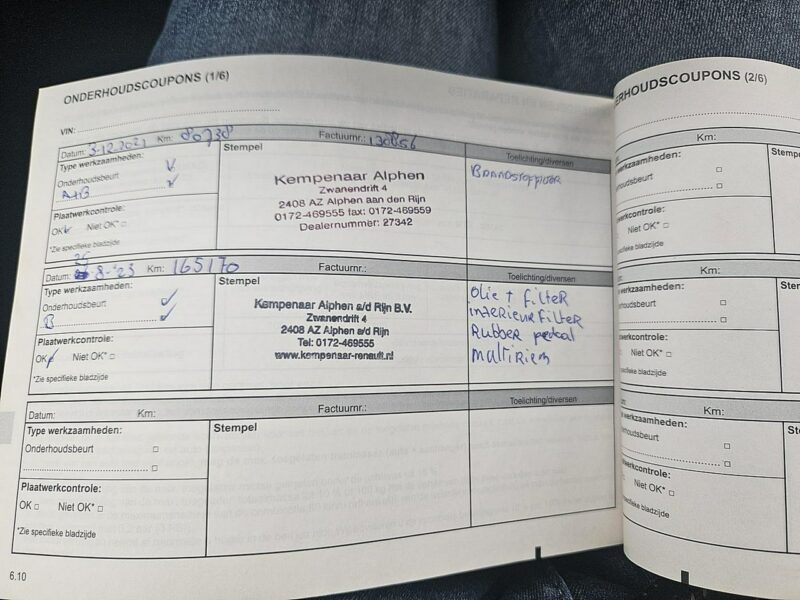 ONDERHOUDSCOUPONS (1/6)
VIN:
Datum: 3-12-2021 Km: 80738 Factuurnr.: 130856
Type werkzaamheden:
Onderhoudsbeurt
A+B
Plaatwerkcontrole:
OK Niet OK*
*Zie specifieke bladzijde
Stempel
Kempenaar Alphen
Zwanendrift 4
2408 AZ Alphen aan den Rijn
0172-469555 fax: 0172-469559
Dealernummer: 27342
Toelichting/diversen
Brandstoffilter
Datum: 25-8-'23 Km: 165170 Factuurnr.:
Type werkzaamheden:
Onderhoudsbeurt
B
Plaatwerkcontrole:
OK Niet OK*
*Zie specifieke bladzijde
Stempel
Kempenaar Alphen a/d Rijn B.V.
Zwanendrift 4
2408 AZ Alphen a/d Rijn
Tel: 0172-469555
www.kempenaar-renault.nl
Toelichting/diversen
Olie + filter
interieurfilter
Rubber pedaal
multiriem
Datum: Km: Factuurnr.:
Type werkzaamheden:
Onderhoudsbeurt
Plaatwerkcontrole:
OK Niet OK*
*Zie specifieke bladzijde
Stempel
Toelichting/diversen
6.10
ERHOUDSCOUPONS (2/6)
Km:
werkzaamheden:
oudsbeurt
werkcontrole:
Niet OK*
specifieke bladzijde
Stempe
Km:
werkzaamheden:
erhoudsbeurt
twerkcontrole:
Niet OK*
specifieke bladzijde
Stem
Km:
werkzaamheden:
erhoudsbeurt
twerkcontrole:
Niet OK*
specifieke bladzijde
Ste